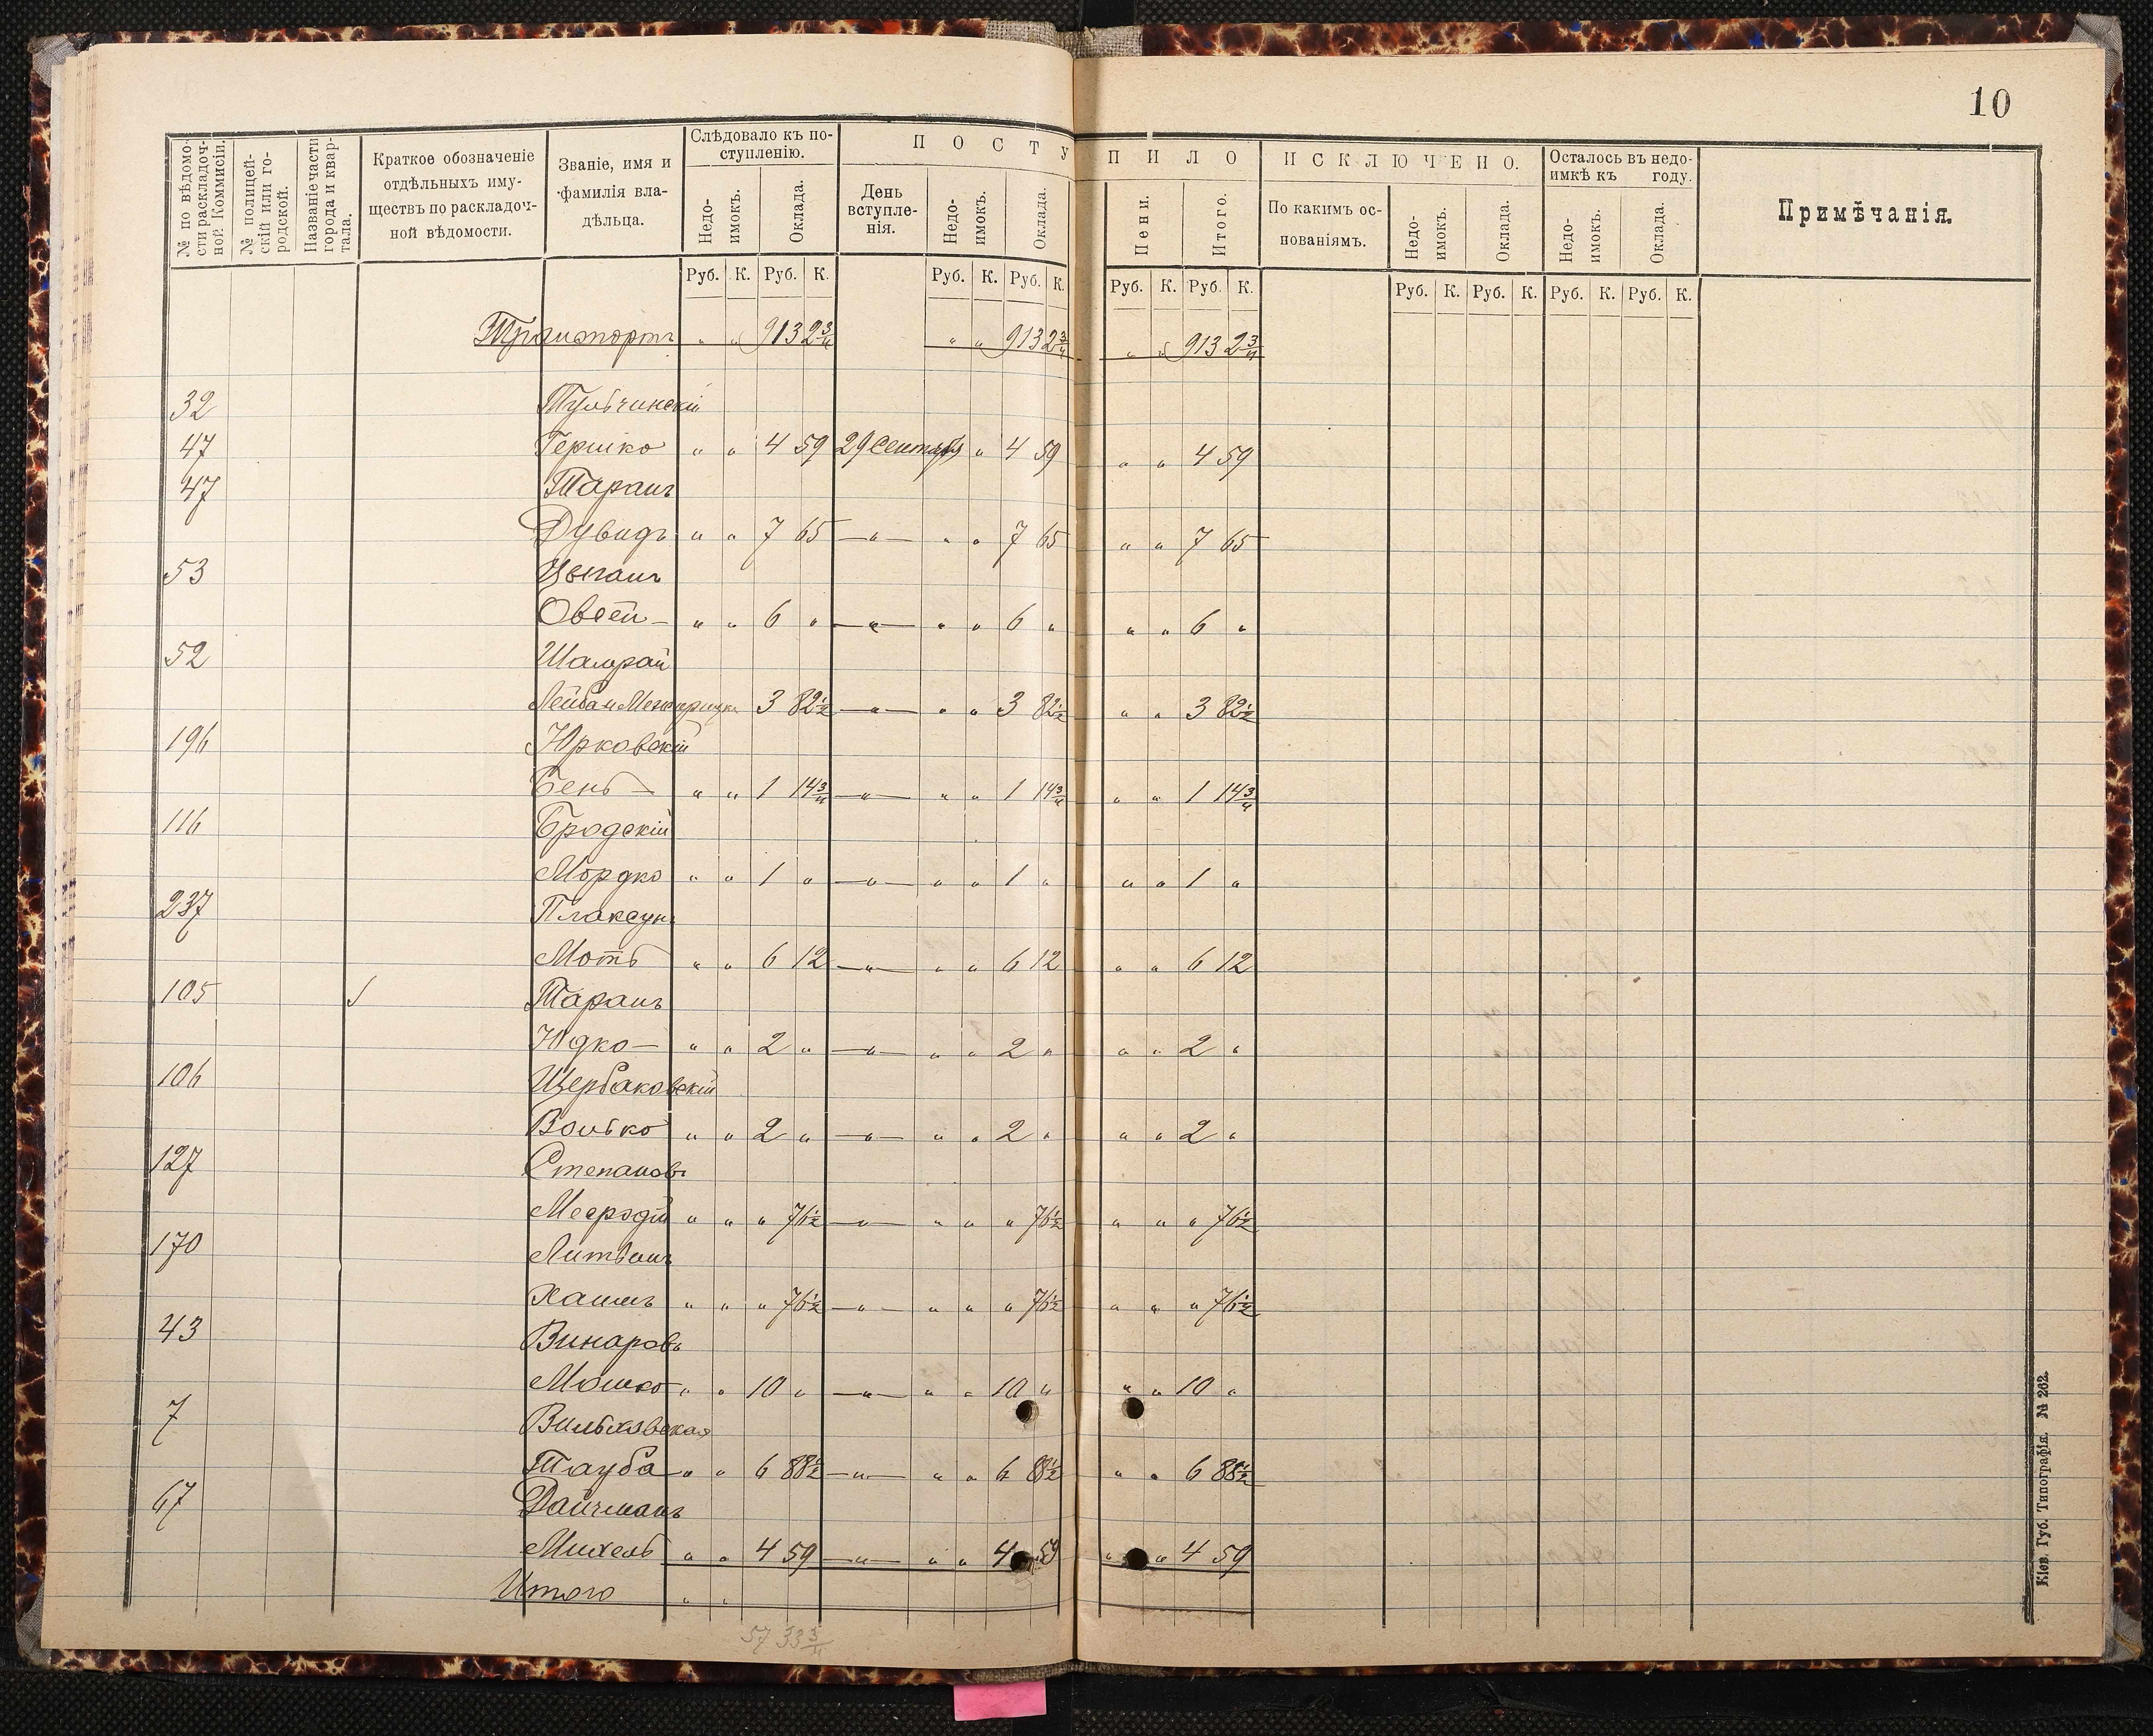 10
№ по вѣдомости раскладочной Коммисіи.
№ полицейскій или городской.
Названіе части города и квартала.
Краткое обозначеніе отдѣльныхъ имуществъ по раскладочной вѣдомости.
Званіе, имя и фамилія владѣльца.
Слѣдовало къ поступленію.
Недоимокъ.
Оклада.
П О С Т У П И Л О
День вступленія.
Недоимокъ.
Оклада.
Пени.
Итого.
И С К Л Ю Ч Е Н О.
По какимъ основаніямъ.
Недоимокъ.
Оклада.
Осталось въ недоимкѣ къ году.
Недоимокъ.
Оклада.
Примѣчанія.
Руб. К. Руб. К. Руб. К. Руб. К. Руб. К. Руб. К. Руб. К. Руб. К. Руб. К. Руб. К.
Транспортъ " " 913 2 3/4 " " 913 2 3/4 " " 913 2 3/4
32 Тульчинскій
47 Гершко " " 4 59 29 Сентября " 4 59 " " 4 59
47 Таранъ
Дувидъ " " 7 65 —"— " " 7 65 " " 7 65
53 Цыганъ
Овсей — " " 6 " —"— " " 6 " " " 6 "
52 Шамрай
Лейба и 3 82 1/2 —"— " " 3 82 1/2 " " 3 82 1/2
196 Юрковскій
Бень — " " 1 14 3/4 —"— " " 1 14 3/4 " " 1 14 3/4
116 Бродскій
Мордко " " 1 " —"— " " 1 " " " 1 "
237 Плаксунъ
Моть " " 6 12 —"— " " 6 12 " " 6 12
105 Таранъ
Юдко — " " 2 " —"— " " 2 " " " 2 "
106 Щербаковскій
Волько " " 2 " —"— " " 2 " " " 2 "
127 Степановъ
" " " 76 1/2 —"— " " " 76 1/2 " " " 76 1/2
170 Литванъ
Хаимъ " " " 76 1/2 —"— " " " 76 1/2 " " " 76 1/2
43 Винаровъ
Мошко " " 10 " —"— " " 10 " " " 10 "
7 Вильковская
Тауба " " 6 88 1/2 —"— " " 6 88 1/2 " " 6 88 1/2
67 Дайчманъ
Михель " " 4 59 —"— " " 4 59 " " 4 59
Итого " "
57 33 3/4
Кіев. Губ. Типографія. № 262.